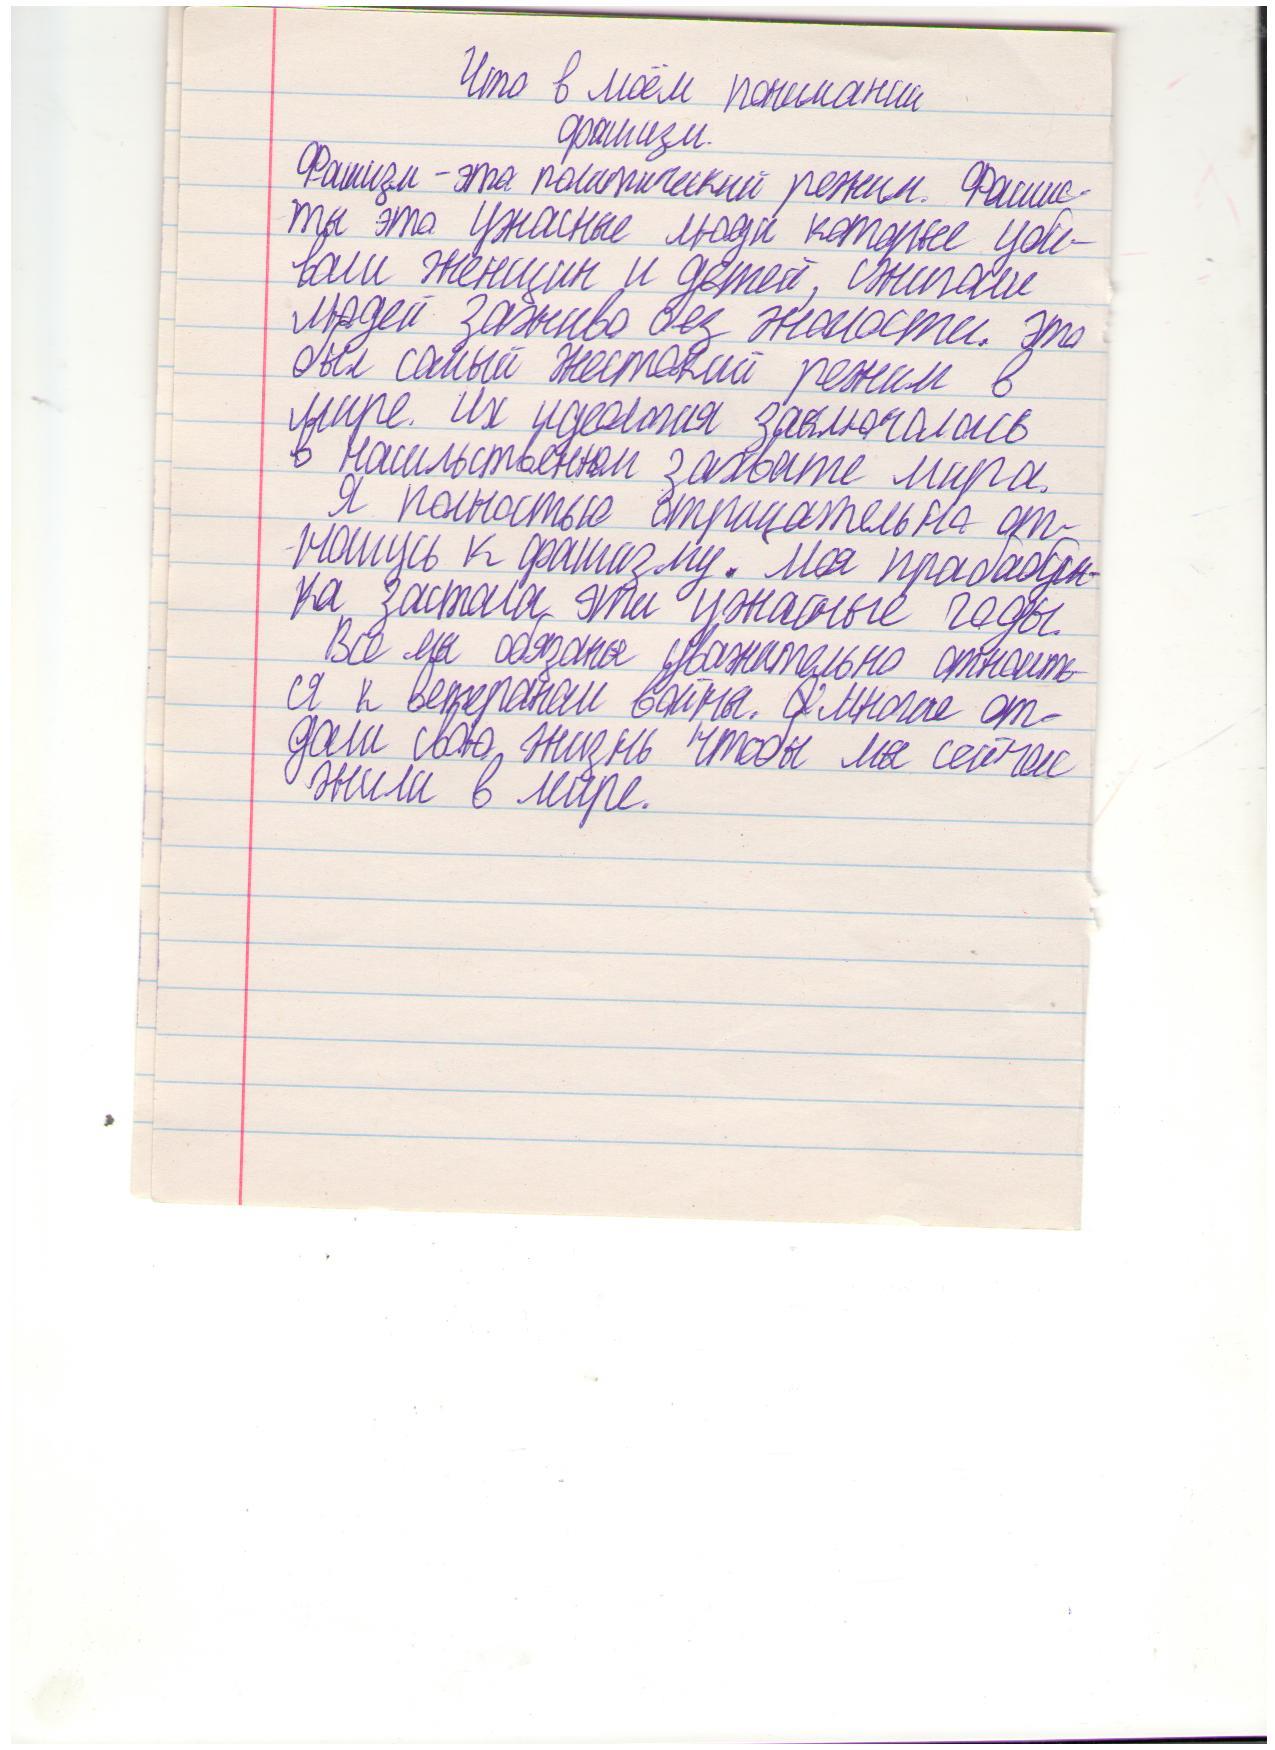 Что в моём понимании
фашизм.
Фашизм - это политический режим. Фашис-
ты это ужасные люди которые уби-
вали женщин и детей, сжигали
людей заживо без жалости. Это
был самый жестокий режим в
мире. Их идеология заключалась
в насильственном захвате мира.
Я полностью отрицательно от-
ношусь к фашизму. Моя прабабуш-
ка застала эти ужасные годы.
Все мы обязаны уважительно относить-
ся к ветеранам войны. Многие от-
дали свою жизнь чтобы мы сейчас
жили в мире.